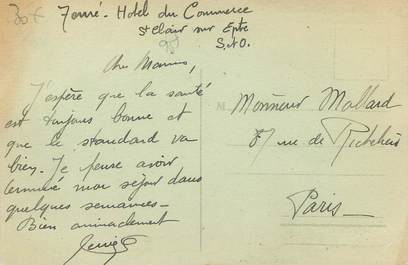 Hotel du Commerce
St Clair sur Epte
S.&O.
J'espère que la santé
est toujours bonne et
que le standard va
bien. Je pense avoir
terminé mon séjour dans
quelques semaines-
Bien amicalement
M
Monsieur Mollard
87 rue de Richelieu
Paris-